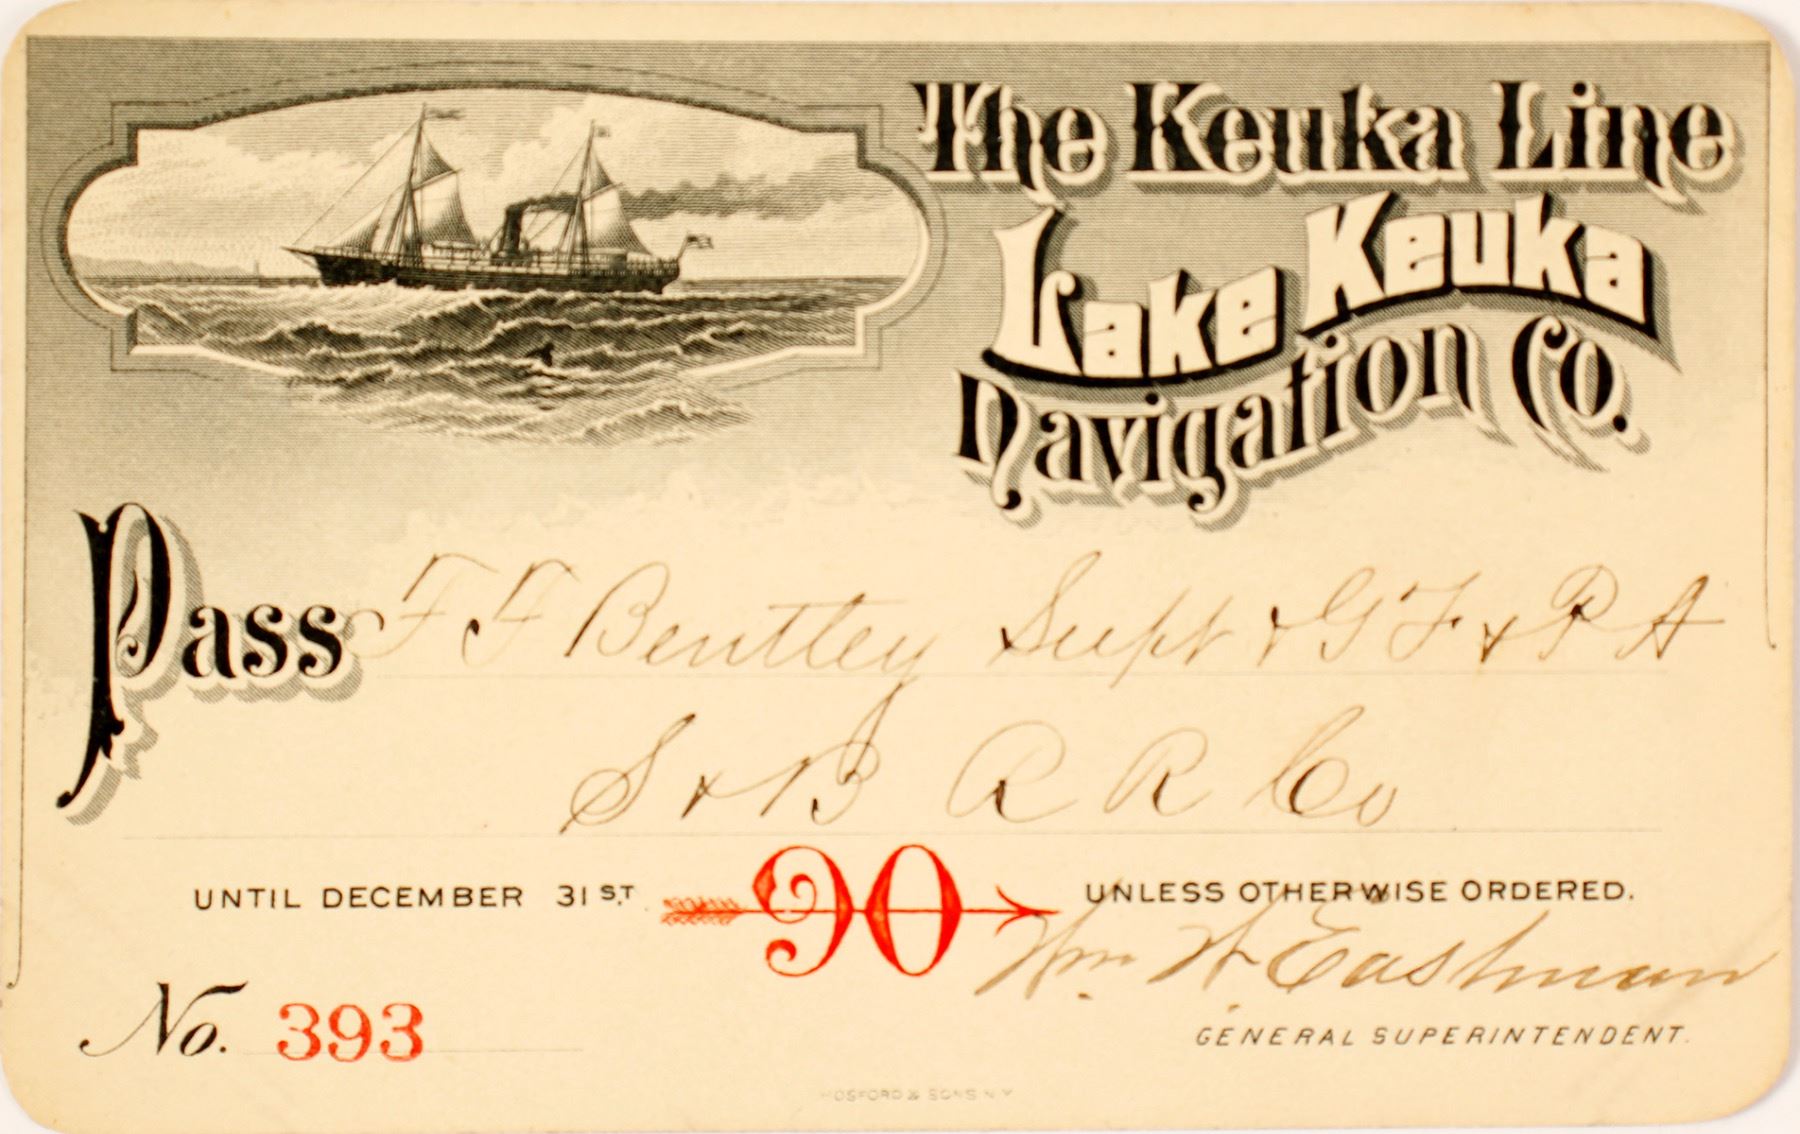 The Keuka Line
Lake Keuka
Navigation Co.
Pass F F Bentley Supt & G F & P A
S & B R R Co
UNTIL DECEMBER 31ST. 90 UNLESS OTHERWISE ORDERED.
Wm. W. Eastman
No. 393
GENERAL SUPERINTENDENT.
HOSFORD & SONS N.Y.